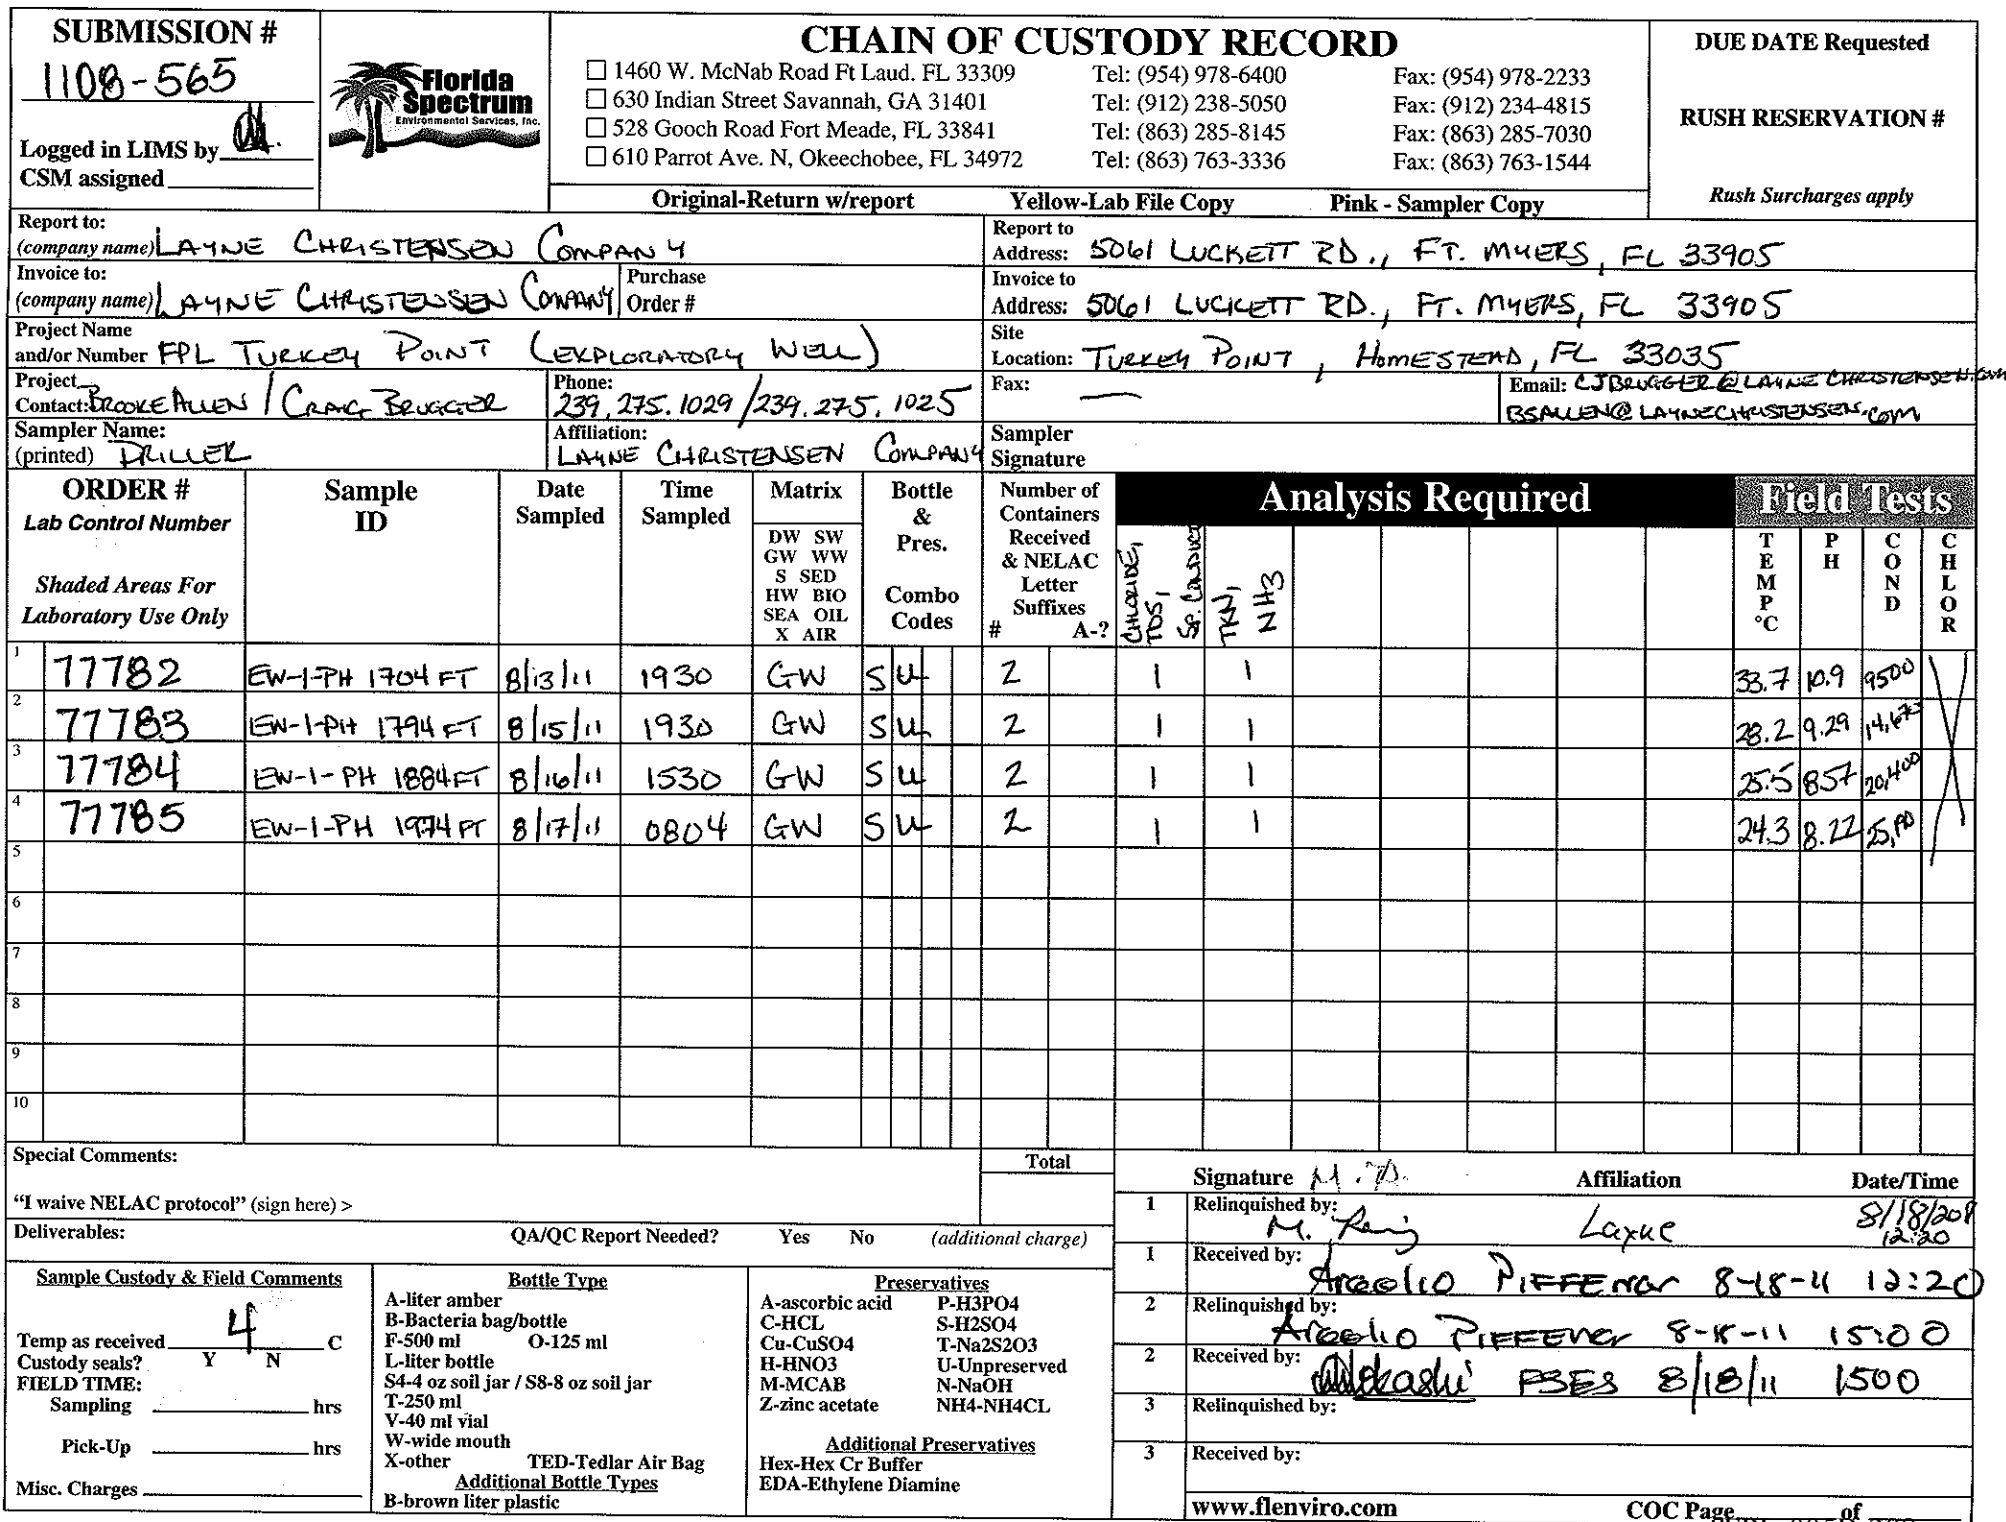 SUBMISSION #
1108-565
Logged in LIMS by
CSM assigned
Florida
Spectrum
Environmental Services, Inc.
CHAIN OF CUSTODY RECORD
☐ 1460 W. McNab Road Ft Laud. FL 33309 Tel: (954) 978-6400 Fax: (954) 978-2233
☐ 630 Indian Street Savannah, GA 31401 Tel: (912) 238-5050 Fax: (912) 234-4815
☐ 528 Gooch Road Fort Meade, FL 33841 Tel: (863) 285-8145 Fax: (863) 285-7030
☐ 610 Parrot Ave. N, Okeechobee, FL 34972 Tel: (863) 763-3336 Fax: (863) 763-1544
Original-Return w/report Yellow-Lab File Copy Pink - Sampler Copy
DUE DATE Requested
RUSH RESERVATION #
Rush Surcharges apply
Report to:
(company name) LAYNE CHRISTENSEN COMPANY
Report to
Address: 5061 LUCKETT RD., FT. MYERS, FL 33905
Invoice to:
(company name) LAYNE CHRISTENSEN COMPANY
Purchase
Order #
Invoice to
Address: 5061 LUCKETT RD., FT. MYERS, FL 33905
Project Name
and/or Number FPL TURKEY POINT (EXPLORATORY WELL)
Site
Location: TURKEY POINT, HOMESTEAD, FL 33035
Project
Contact: BROOKE ALLEN / CRAIG BRUGGER
Phone:
239.275.1029 / 239.275.1025
Fax: —
Email: CJBRUGGER@LAYNECHRISTENSEN.COM
BSALLEN@LAYNECHRISTENSEN.COM
Sampler Name:
(printed) DRILLER
Affiliation:
LAYNE CHRISTENSEN COMPANY
Sampler
Signature
ORDER #
Lab Control Number
Shaded Areas For
Laboratory Use Only
Sample
ID
Date
Sampled
Time
Sampled
Matrix
DW SW
GW WW
S SED
HW BIO
SEA OIL
X AIR
Bottle
&
Pres.
Combo
Codes
Number of
Containers
Received
& NELAC
Letter
Suffixes
# A-?
Analysis Required
CHLORIDE,
TDS,
SP. CONDUCT
TKN,
NH3
Field Tests
TEMP °C
PH
COND
CHLOR
1 77782 EW-1-PH 1704 FT 8/13/11 1930 GW S U 2 1 1 33.7 10.9 9500
2 77783 EW-1-PH 1794 FT 8/15/11 1930 GW S U 2 1 1 28.2 9.29
3 77784 EW-1-PH 1884 FT 8/16/11 1530 GW S U 2 1 1 25.5 8.57 20,400
4 77785 EW-1-PH 1974 FT 8/17/11 0804 GW S U 2 1 1 24.3 8.22
5
6
7
8
9
10
Special Comments:
"I waive NELAC protocol" (sign here) >
Total
Deliverables:
QA/QC Report Needed? Yes No (additional charge)
Sample Custody & Field Comments
Temp as received 4 C
Custody seals? Y N
FIELD TIME:
Sampling hrs
Pick-Up hrs
Misc. Charges
Bottle Type
A-liter amber
B-Bacteria bag/bottle
F-500 ml O-125 ml
L-liter bottle
S4-4 oz soil jar / S8-8 oz soil jar
T-250 ml
V-40 ml vial
W-wide mouth
X-other TED-Tedlar Air Bag
Additional Bottle Types
B-brown liter plastic
Preservatives
A-ascorbic acid P-H3PO4
C-HCL S-H2SO4
Cu-CuSO4 T-Na2S2O3
H-HNO3 U-Unpreserved
M-MCAB N-NaOH
Z-zinc acetate NH4-NH4CL
Additional Preservatives
Hex-Hex Cr Buffer
EDA-Ethylene Diamine
Signature Affiliation Date/Time
1 Relinquished by: M. Layne 8/18/2011 12:20
1 Received by: 8-18-11 12:20
2 Relinquished by: 8-18-11 15:00
2 Received by: FSES 8/18/11 1500
3 Relinquished by:
3 Received by:
www.flenviro.com
COC Page of